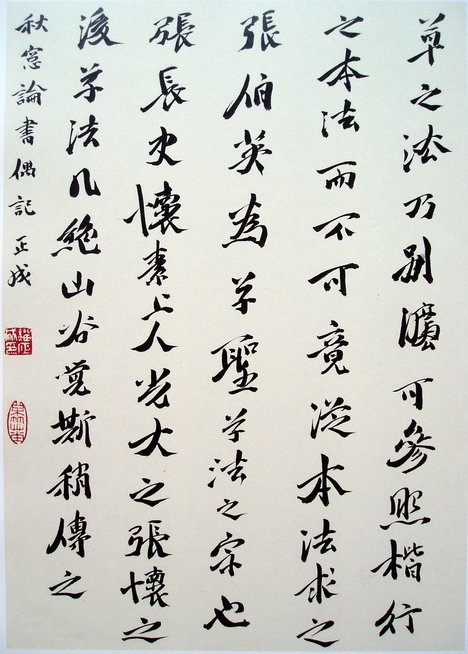 草之法乃別灋可參照楷行
之本法而不可竟從本法求之
張伯英為草聖草法之宗也
張長史懷素上人光大之張懷之
後草法几絕山谷覺斯稍傳之
秋窓論書偶記 正成